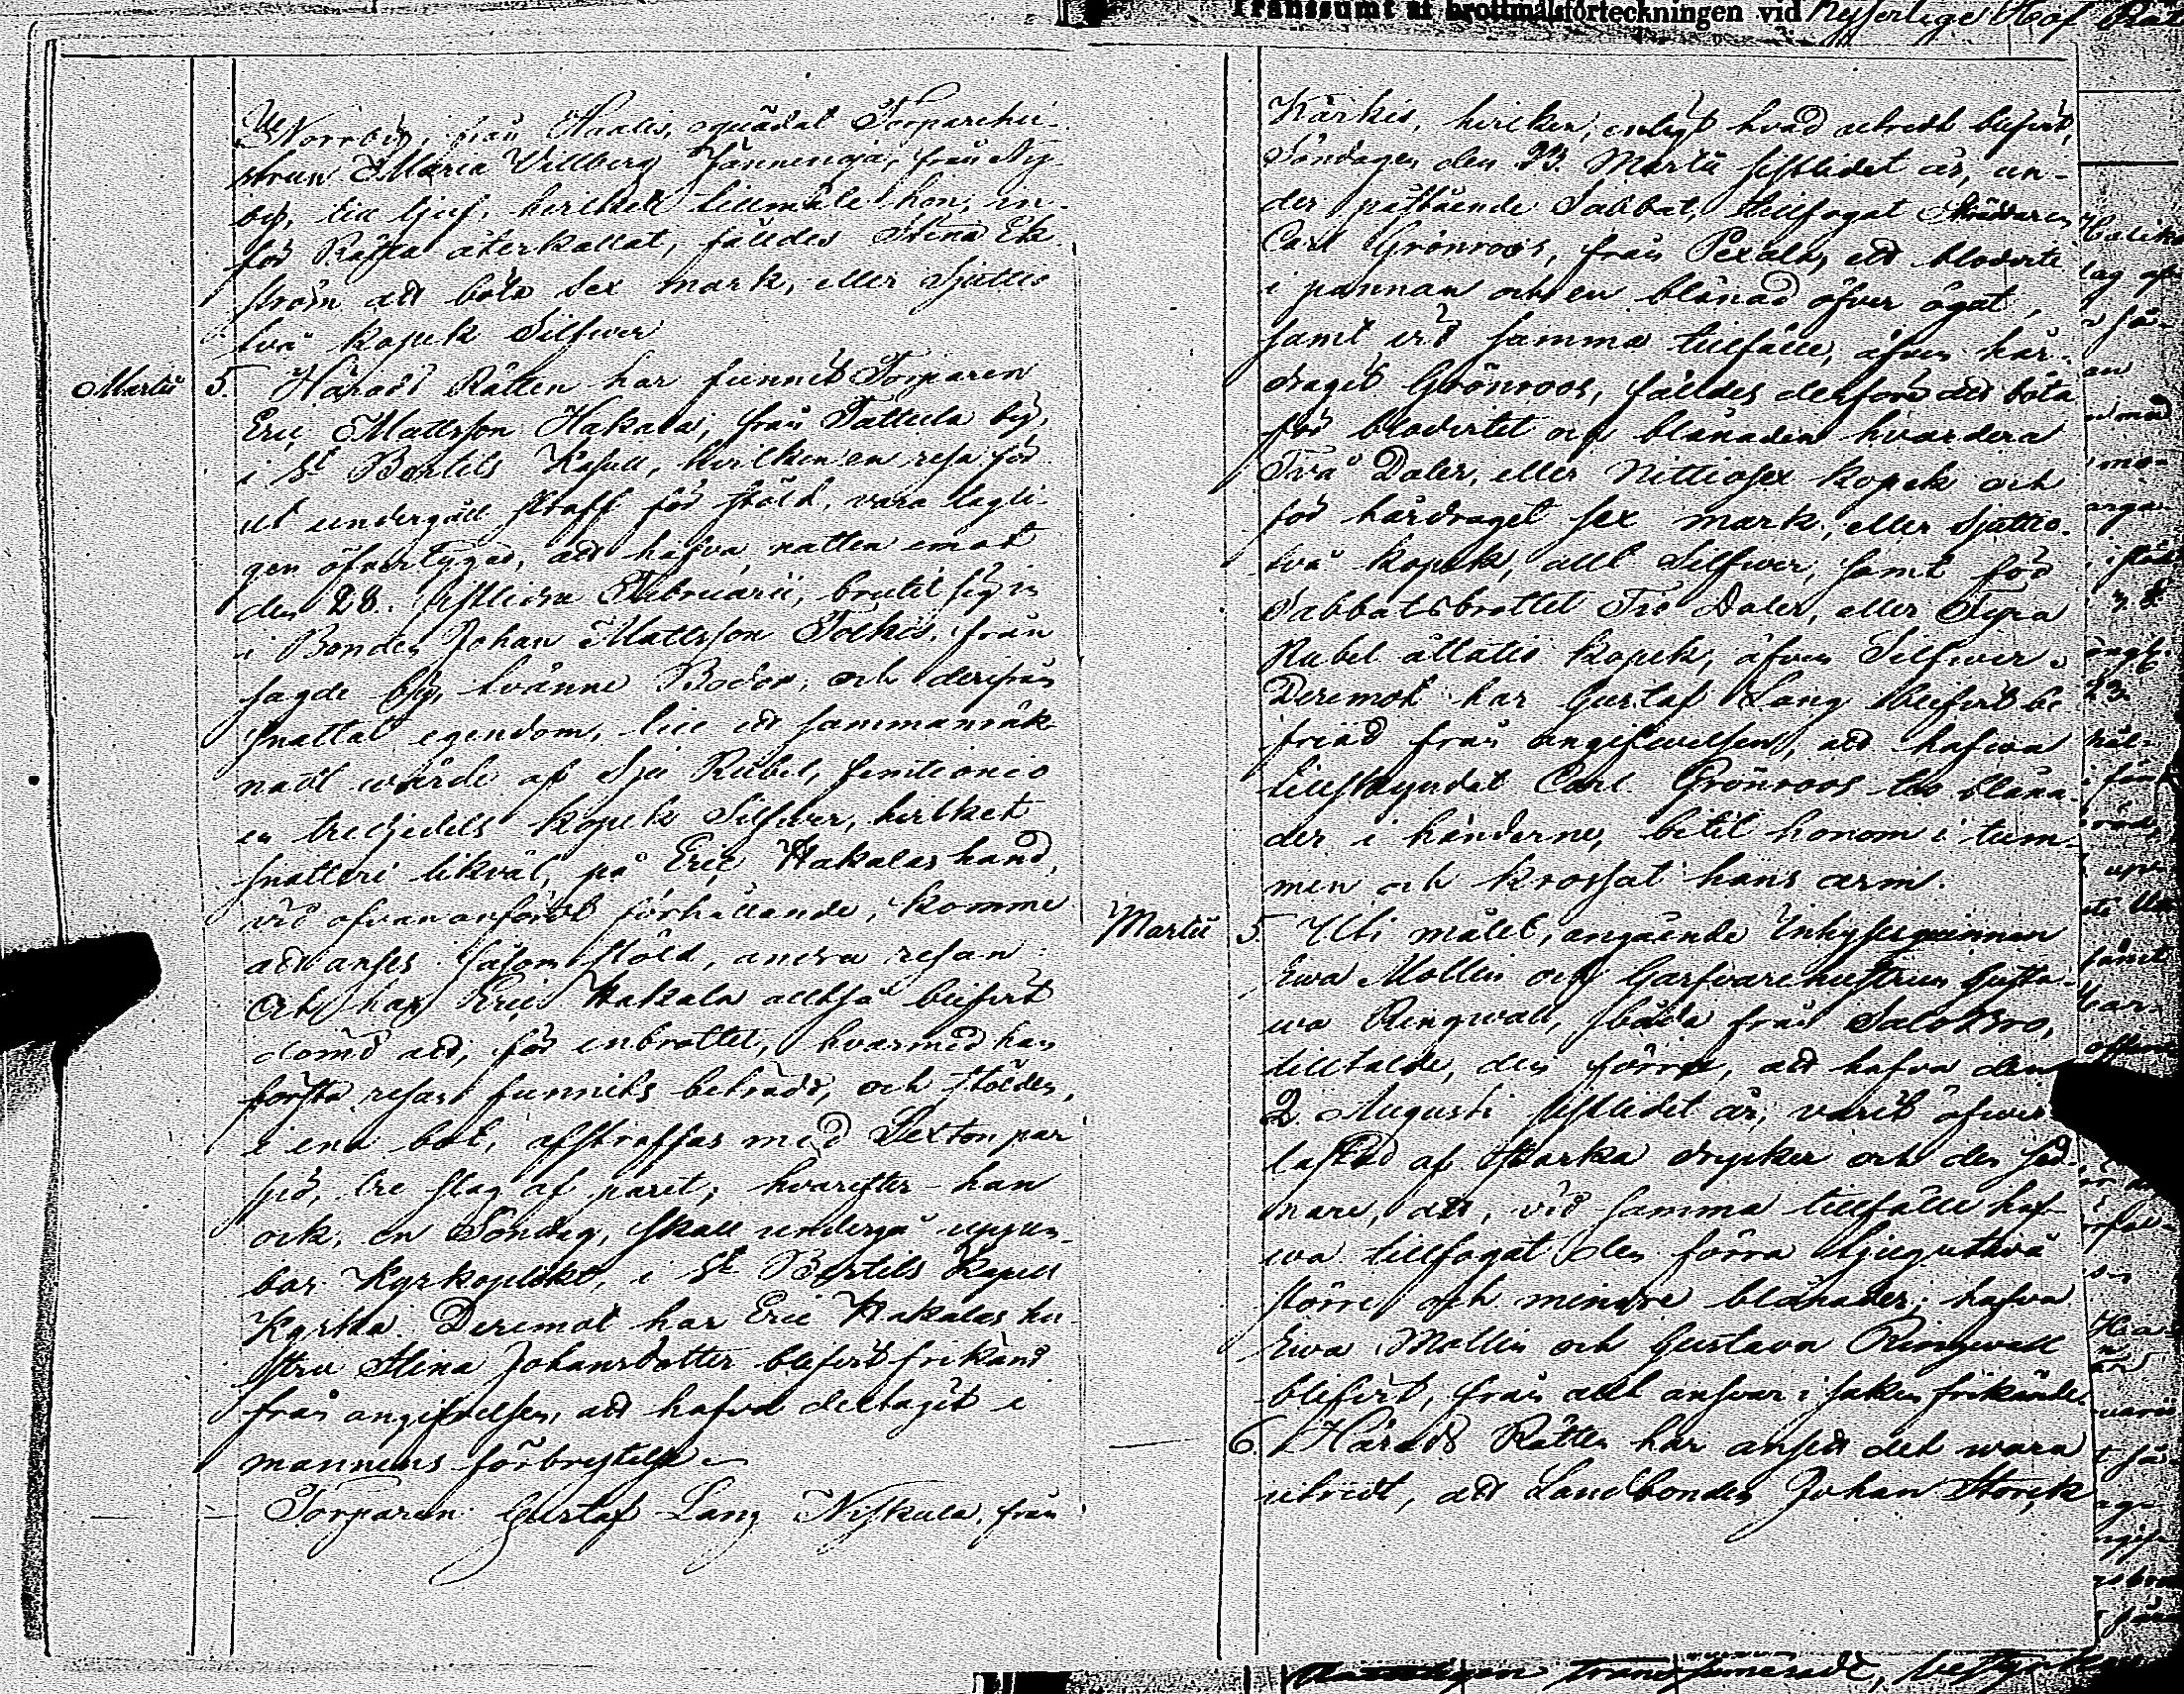 Transsumt af brottmålsförteckningen vid Kejserlige Hof Rätt
Norrby, från Haalis, oquädat Torparehu-
strun Maria Villberg Jänneoja, från Ny-
by, till tjuf, hvilket tillmäle hon, in-
för Rätta återkallat, fälldes Stina Ek-
ström att böta sex mark, eller sjuttio
två kopek Silfwer
Martii 5. Härads Rätten har funnit Torparen
Eric Mattsson Hakala, från Tattula by,
i St Bertils Kapell, hvilken en resa för-
ut undergått straff för stöld, vara lagli-
gen öfvertygad, att hafva, natten emot
den 28. sistlidne Februarii, brutit sig in
i Bonden Johan Mattsson Tolkis, från
sagde by, tvänne Bodor, och derifrån
snattat egendom, till ett sammanräk-
nadt wärde af Sju Rubel, femtionio
en tredjedels kopek Silfwer, hvilket
snatteri likväl, på Eric Hakalas hand,
vid ofvananfördt förhållande, komme
att anses såsom stöld, andra resan:
Och har Eric Hakala alltså blifvit
dömd att, för inbrottet, hvarmed han
första resan funnits beträdd, och stölden,
i ena bot, afstraffas med Sexton par
spö, tre slag af paret; hvarefter han
ock, en Söndag, skall undergå uppen-
bar Kyrkoplikt, i St Bertils Kapell
Kyrka. Deremot har Eric Hakalas hu-
stru Stina Johansdotter blifvit frikänd
från angifvelsen, att hafva deltagit i
mannens förbrytelse.
Torparen Gustaf Lang Nyskula, från
Kärkis, hvilken, enligt hvad utredt blifvit,
Söndagen den 23. Martii sistlidet år, un-
der påstående Sabbat, tillfogat Skräddaren
Carl Grönroos, från Pexala, ett blodvite
i pannan och en blånad öfver ögat,
samt vid samma tillfälle, äfven hår-
dragit Grönroos, fälldes derföre att böta
för blodvitet och blånaden hvardera
Två Daler, eller Nittiosex kopek och
för hårdraget sex mark, eller sjuttio-
två kopek, allt Silfwer, samt för
Sabbatsbrottet Tio Daler, eller Fyra
Rubel åttatio kopek, äfven Silfwer.
Deremot har Gustaf Lang blifvit be-
friad från angifwelsen, att hafwa
tillskyndat Carl Grönroos två blåna-
der i händerne, bitit honom i tum-
men och krossat hans arm.
Martii 5. Uti målet, angående Inhysesqvinnan
Ewa Mollin och Garfvarehustrun Gusta-
va Ringwall, båda från Salo bro,
tilltalde, den förra, att hafva den
2. Augusti sistlidet år, varit öfver-
lastad af starka drycker och den sed-
nare, att, vid samma tillfälle haf-
wa tillfogat den förra tjugutvå
större och mindre blånader; hafva
Ewa Mollin och Gustava Ringwall
blifvit, från allt ansvar i saken frikände.
6. Härads Rätten har ansett det wara
utredt, att Landbonden Johan Storck